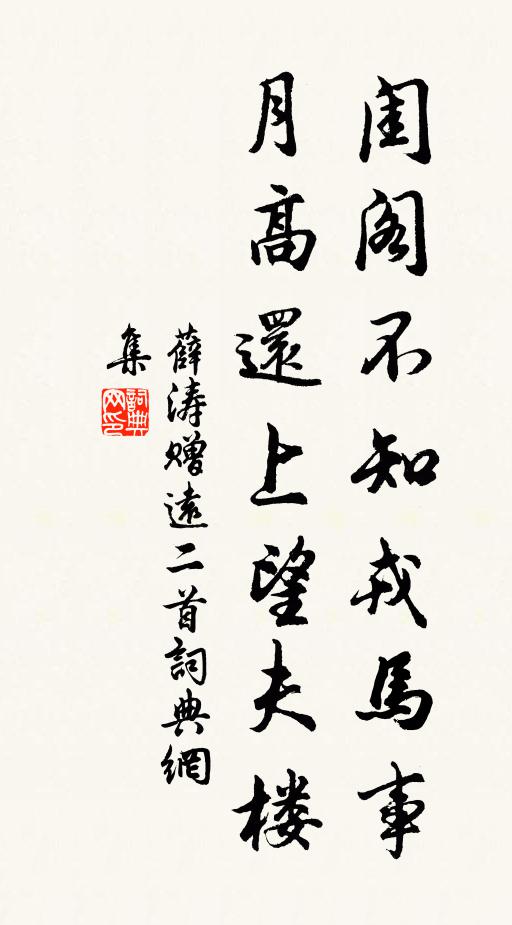 閨阁不知戎馬事
月高還上望夫楼
薛涛赠遠二首詞典網
集
詞典网印